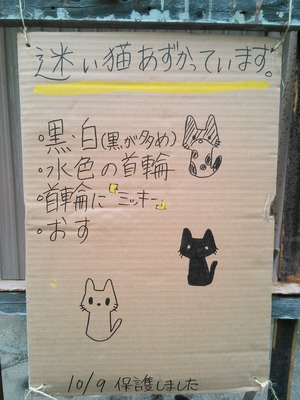 迷い猫あずかっています。
・黒・白(黒が多め)
・水色の首輪
・首輪に『ミッキー』
・おす
10/9 保護しました